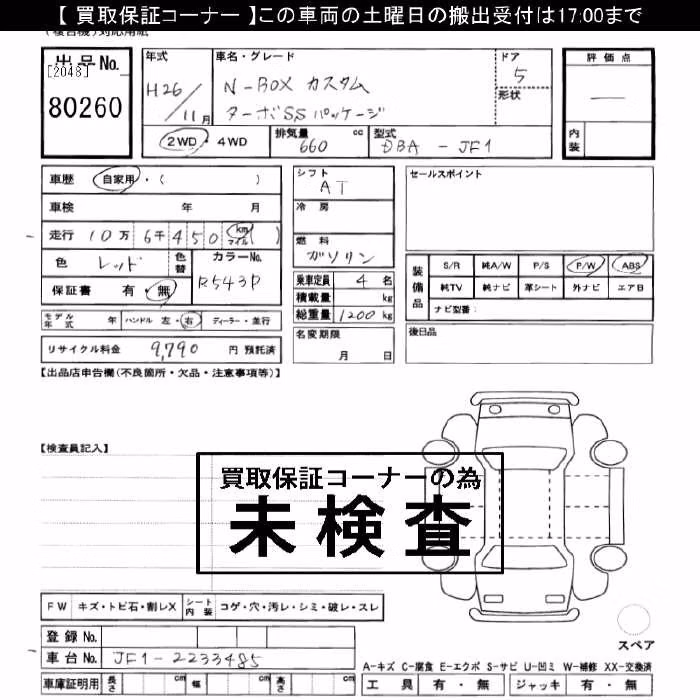 【 買取保証コーナー 】この車両の土曜日の搬出受付は17:00まで
出品No.
[2048]
80260
年式
H26/11月
車名・グレード
N-BOX カスタム
ターボSSパッケージ
ドア
5
形状
2WD・4WD
排気量 660 cc
型式 DBA - JF1
評価点
—
内装
車歴 自家用・( )
車検 年 月
走行 10万 6千 450 km マイル ( )
色 レッド 色替
カラーNo.
R543P
保証書 有・無
シフト
AT
冷房
燃料
ガソリン
乗車定員 4 名
積載量 kg
総重量 1200 kg
セールスポイント
装備品 S/R 純A/W P/S P/W ABS
純TV 純ナビ 革シート 外ナビ エアB
ナビ型番:
モデル年式 年 ハンドル 左・右 ディーラー・並行
リサイクル料金 9,790 円 預託済
名変期限
月 日
後日品
【出品店申告欄(不良箇所・欠品・注意事項等)】
【検査員記入】
買取保証コーナーの為
未検査
FW キズ・トビ石・割レX シート内装 コゲ・穴・汚レ・シミ・破レ・スレ
登録No.
車台No. JF1-2233485
車庫証明用 長さ cm 幅 cm 高さ cm
スペア
A-キズ C-腐食 E-エクボ S-サビ U-凹ミ W-補修 XX-交換済
工具 有・無 ジャッキ 有・無